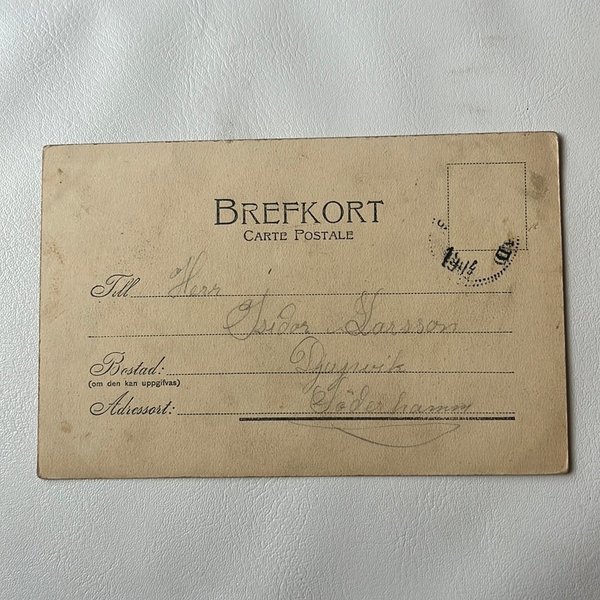 BREFKORT
CARTE POSTALE
Till Herr
Isidor Larsson
Bostad: Djupvik
(om den kan uppgifvas)
Adressort: Söderhamn